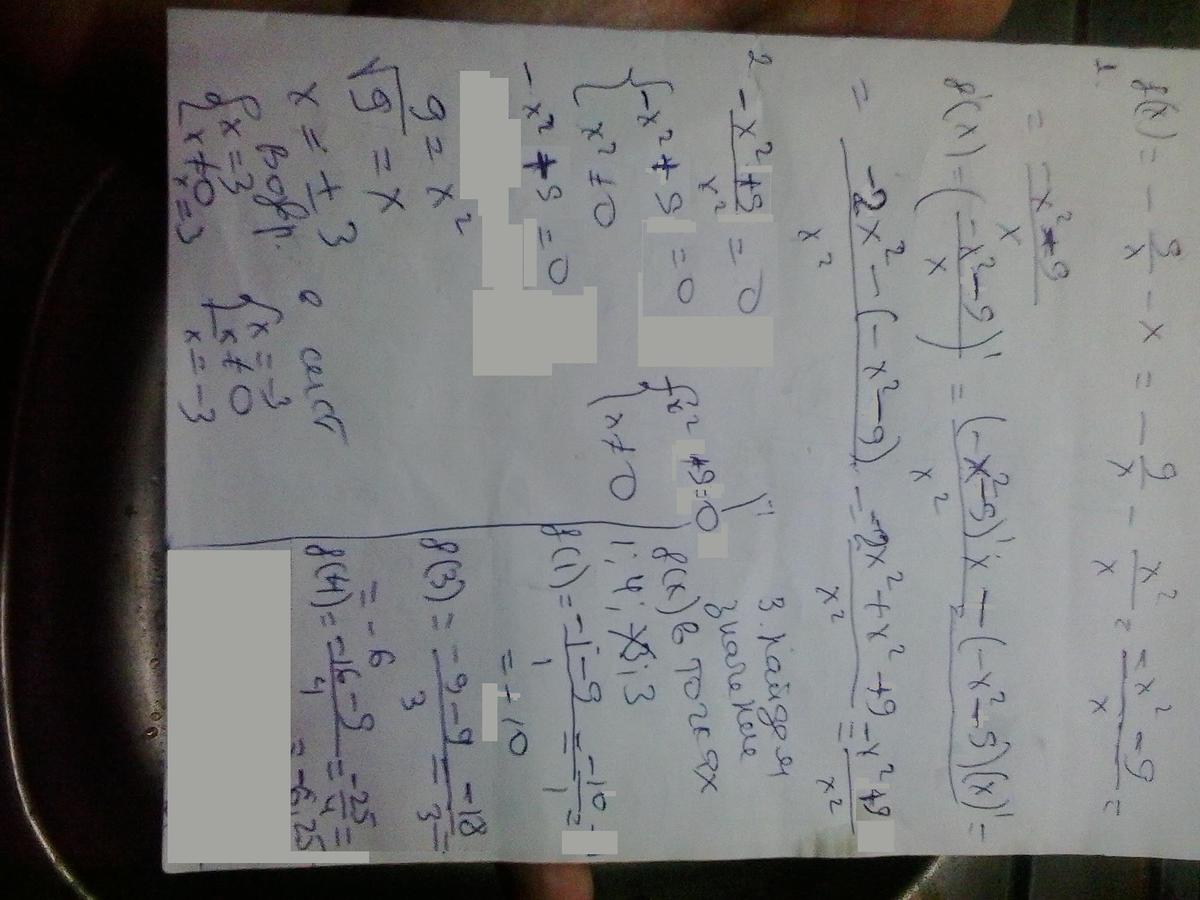 1.
f(x) = - 9/x - x = - 9/x - x²/x = (-x² - 9)/x =
= (-x² - 9)/x
f'(x) = ((-x² - 9)/x)' = ((-x² - 9)'x - (-x² - 9)(x)')/x² =
= (-2x² - (-x² - 9))/x² = (-2x² + x² + 9)/x² = (-x² + 9)/x²
2 (-x² + 9)/x² = 0
{-x² + 9 = 0
{x² ≠ 0
{x² + 9 = 0
{x ≠ 0
-x² + 9 = 0
9 = x²
√9 = x
x = ± 3
{x = 3
{x ≠ 0
x = 3
{x = -3
{x ≠ 0
x = -3
3. Найдем
значение
f(x) в точках
1; 4; 3
f(1) = (-1 - 9)/1 = -10/1 =
= - 10
f(3) = (-9 - 9)/3 = -18/3 =
= - 6
f(4) = (-16 - 9)/4 = -25/4 =
= -6,25